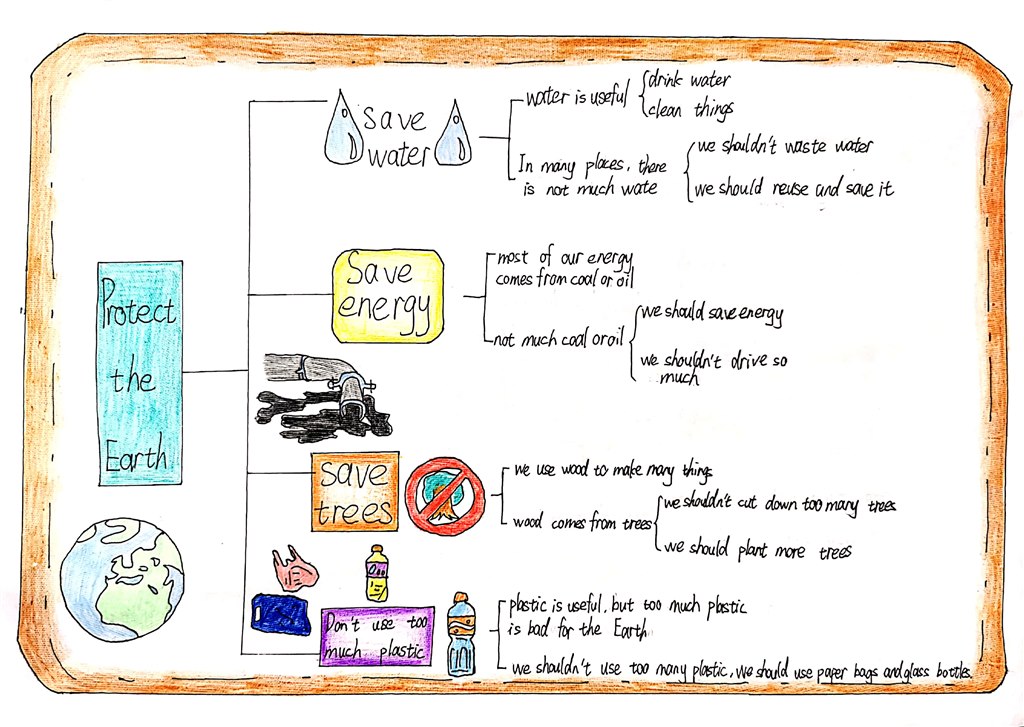 Protect
the
Earth
save
water
water is useful
drink water
clean things
In many places, there
is not much wate
we shouldn't waste water
we should reuse and save it
Save
energy
most of our energy
comes from coal or oil
not much coal or oil
we should save energy
we shouldn't drive so
much
save
trees
we use wood to make many things
wood comes from trees
we shouldn't cut down too many trees
we should plant more trees
Don't use too
much plastic
plastic is useful, but too much plastic
is bad for the Earth
we shouldn't use too many plastic, we should use paper bags and glass bottles.